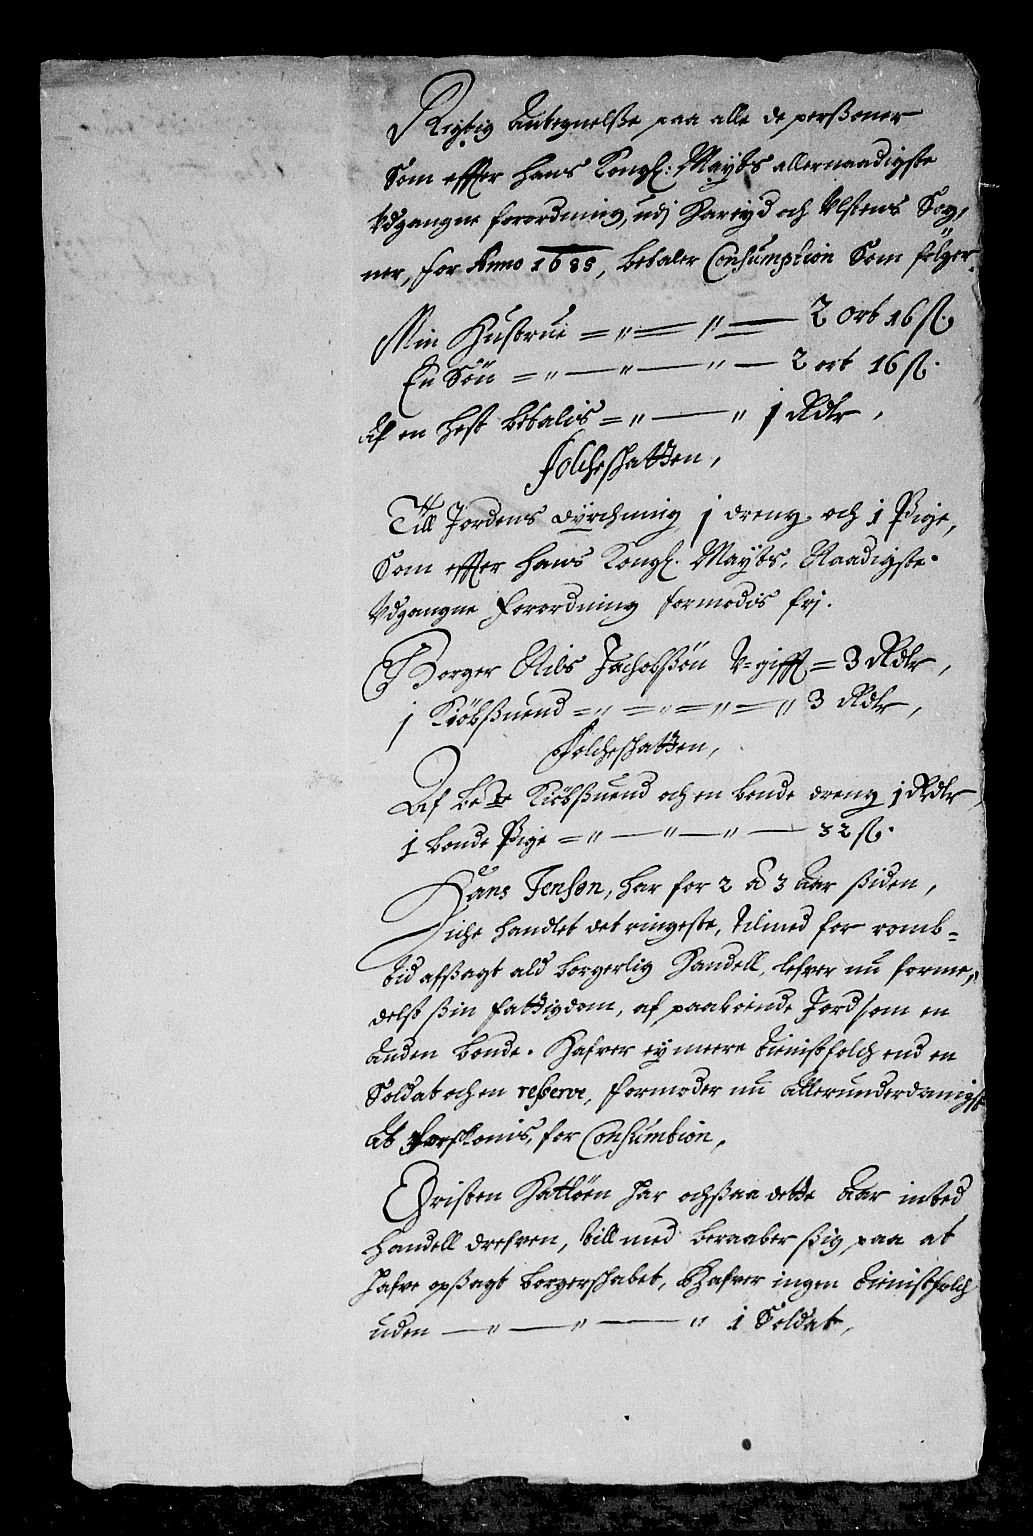 Rigtig Antegnelsse paa alle de perssoner
Som effter hans Kongl: Maÿts allernaadigste
Udgangne forordning, udj Hareÿd och Ulstens Sog,
ner, for Anno 1685, betaler Consumption Som følger
Min Hustrue = " = " — 2 ort 16 ß.
En Søn = " — " — " — 2 ort 16 ß.
Af en hest betalis = " — " 1 Rdlr,
Folcheschatten,
Till Jordens dÿrchning 1 dreng och 1 Pige,
Som effter hans Kongl. Maÿts, Naadigste
Udgangne forordning formodis frj.
Borger Nils Jachobssøn U=gifft = 3 Rdlr,
1 Kiøbssuend = " = " = " = " 3 Rdlr,
Folcheschatten,
Af be:te Kiøbssuend och en bonde dreng 1 Rdlr
1 bonde Pige = " — " — " — 32 ß.
Hans Jensøn, har for 2 a 3 Aar ssiden,
iche handlet det ringeste, tilmed for romb=
tid afssagt ald borgerlig Handell, lefver nu forme,
delst ssin fattigdom, af paaboende Jord som en
Anden bonde. Hafver eÿ meere tienistfolch end en
Soldat och en resserve, formoder nu allerunderdanigst
At forskonis, for Consumtion,
Christen Hatløen har ochssaa dette Aar inted
handell drefven, till med beraaber ssig paa at
hafve opssagt borgerschabet, Hafver ingen tienistfolch
uden — " — " — " 1 Soldat,